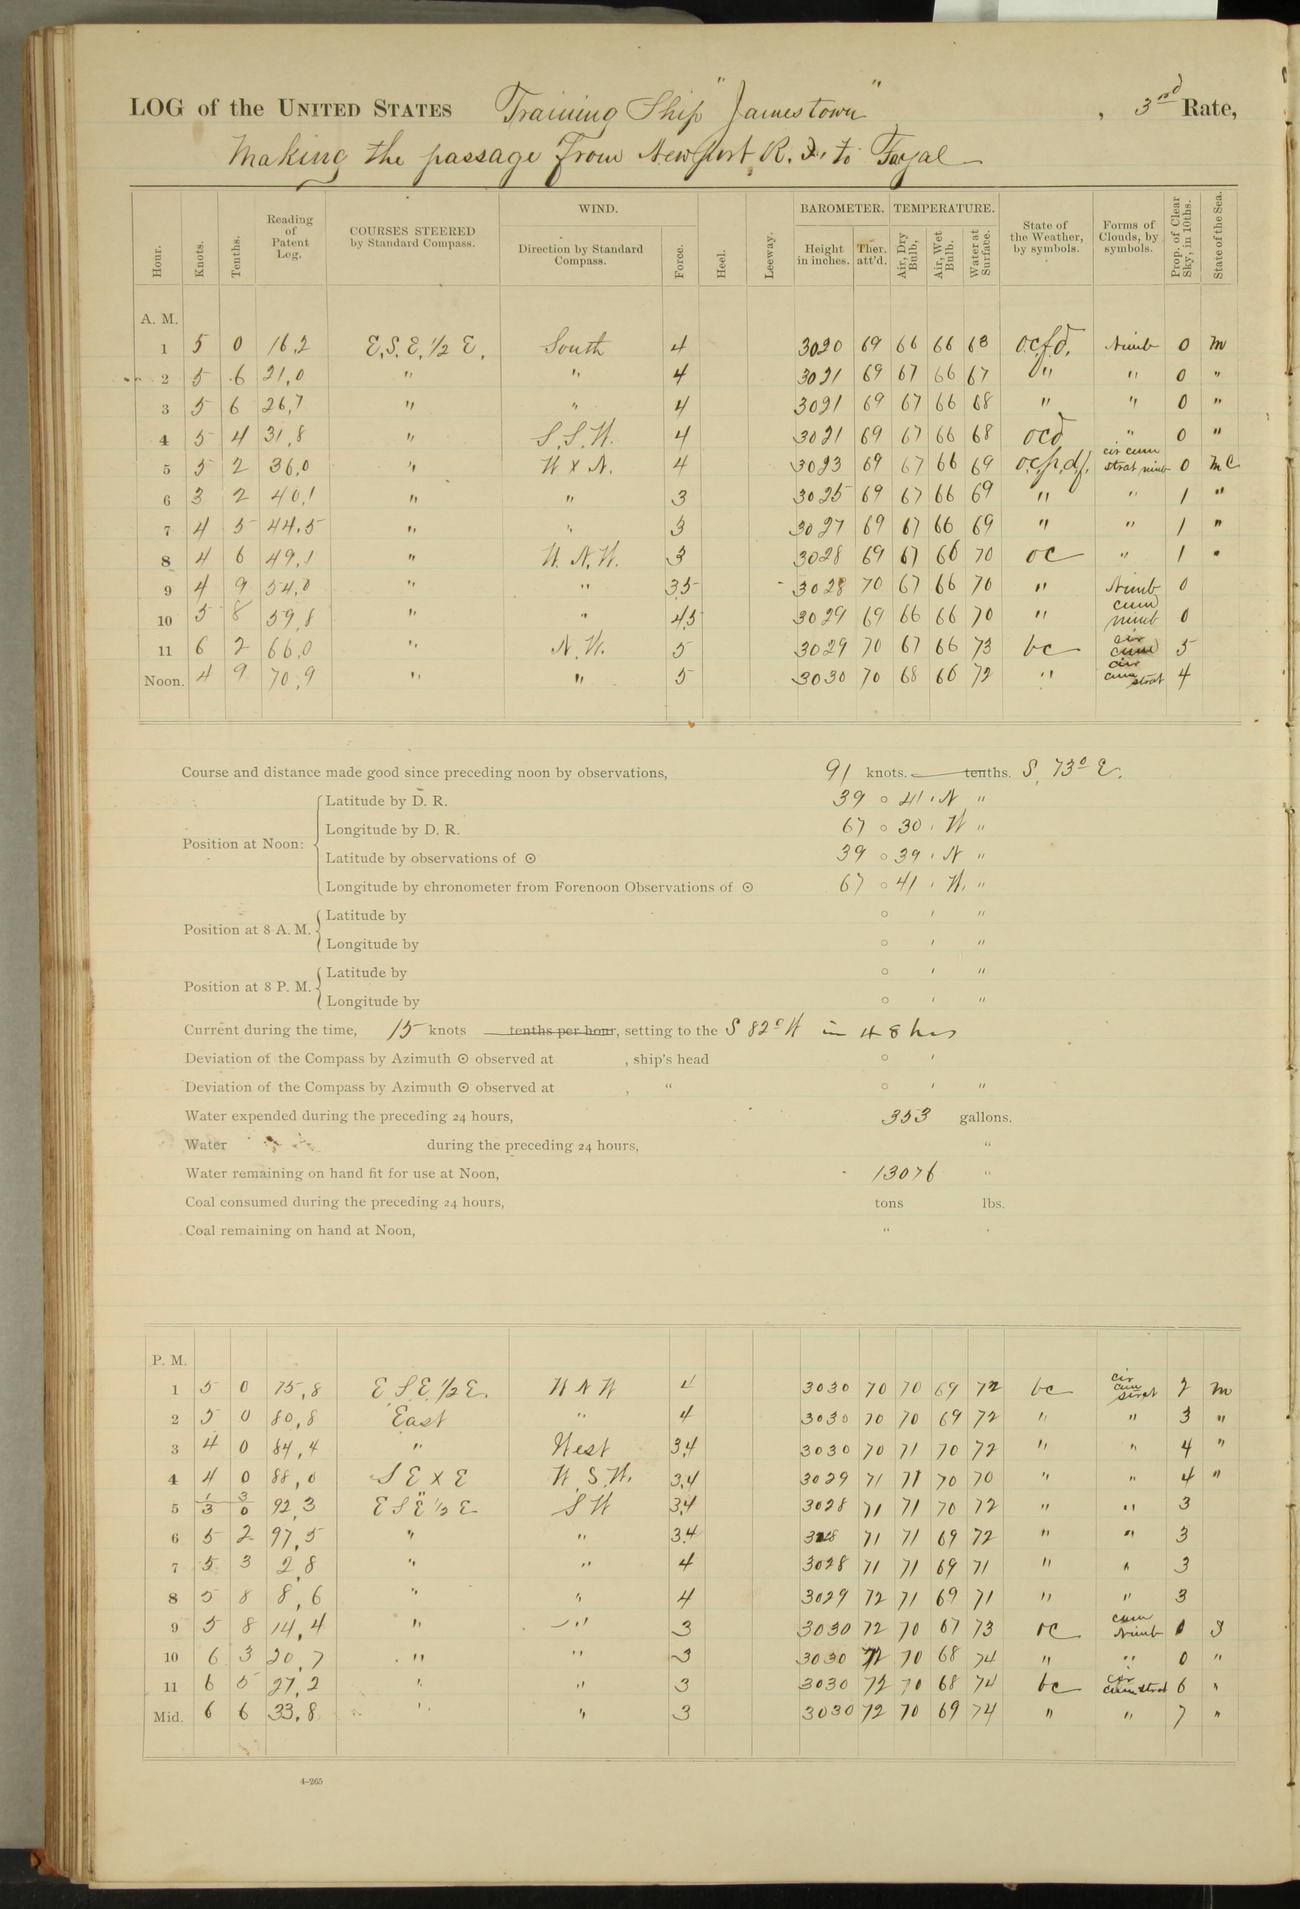 LOG of the UNITED STATES Training Ship "Jamestown" , 3rd Rate,
Making the passage from Newport, R. I. to Fayal
Hour. Knots. Tenths. Reading of Patent Log. COURSES STEERED by Standard Compass. WIND. Direction by Standard Compass. Force. Heel. Leeway. BAROMETER. Height in inches. Ther. att'd. TEMPERATURE. Air, Dry Bulb. Air, Wet Bulb. Water at Surface. State of the Weather, by symbols. Forms of Clouds, by symbols. Prop. of Clear Sky, in 10ths. State of the Sea.
A. M.
1 5 0 16,2 E.S.E. 1/2 E. South 4 3020 69 66 66 68 o.c.f.d. Nimb 0 m
2 5 6 21,0 " " 4 3021 69 67 66 67 " " 0 "
3 5 6 26,7 " " 4 3021 69 67 66 68 " " 0 "
4 5 4 31,8 " S.S.W. 4 3021 69 67 66 68 ocd " 0 "
5 5 2 36,0 " W x N. 4 3023 69 67 66 69 o.c.p.d.f. cir cum strat nimb 0 m c
6 3 2 40,1 " " 3 3025 69 67 66 69 " " 1 "
7 4 5 44,5 " " 3 3027 69 67 66 69 " " 1 "
8 4 6 49,1 " W. N. W. 3 3028 69 67 66 70 oc " 1 "
9 4 9 54,0 " " 3.5 3028 70 67 66 70 " Nimb 0
10 5 8 59,8 " " 4.5 3029 69 66 66 70 " cum nimb 0
11 6 2 66,0 " N. W. 5 3029 70 67 66 73 bc cir cum 5
Noon. 4 9 70,9 " " 5 3030 70 68 66 72 " cir cum strat 4
Course and distance made good since preceding noon by observations, 91 knots. tenths. S. 73° E.
Position at Noon:
Latitude by D. R. 39 ° 41 ' N "
Longitude by D. R. 67 ° 30 ' W "
Latitude by observations of ⊙ 39 ° 39 ' N "
Longitude by chronometer from Forenoon Observations of ⊙ 67 ° 41 ' W. "
Position at 8 A. M.
Latitude by ° ' "
Longitude by ° ' "
Position at 8 P. M.
Latitude by ° ' "
Longitude by ° ' "
Current during the time, 15 knots tenths per hour, setting to the S 82° W in 48 hrs
Deviation of the Compass by Azimuth ⊙ observed at , ship's head ° '
Deviation of the Compass by Azimuth ⊙ observed at , " ° ' "
Water expended during the preceding 24 hours, 353 gallons.
Water during the preceding 24 hours, "
Water remaining on hand fit for use at Noon, 13076 "
Coal consumed during the preceding 24 hours, tons lbs.
Coal remaining on hand at Noon, "
P. M.
1 5 0 75,8 E S E 1/2 E. W N W 4 3030 70 70 69 72 bc cir cum strat 2 m
2 5 0 80,8 East " 4 3030 70 70 69 72 " " 3 "
3 4 0 84,4 " West 3,4 3030 70 71 70 72 " " 4 "
4 4 0 88,0 S E x E W. S. W. 3,4 3029 71 71 70 70 " " 4 "
5 1/3 3/0 92,3 E S E 1/2 E S W 3,4 3028 71 71 70 72 " " 3
6 5 2 97,5 " " 3.4 3028 71 71 69 72 " " 3
7 5 3 2,8 " " 4 3028 71 71 69 71 " " 3
8 5 8 8,6 " " 4 3029 72 71 69 71 " " 3
9 5 8 14,4 " " 3 3030 72 70 67 73 oc cum Nimb 0 S
10 6 3 20,7 " " 3 3030 72 70 68 74 " " 0 "
11 6 5 27,2 " " 3 3030 72 70 68 74 bc cir cum strat 6 "
Mid. 6 6 33,8 " " 3 3030 72 70 69 74 " " 7 "
4-265